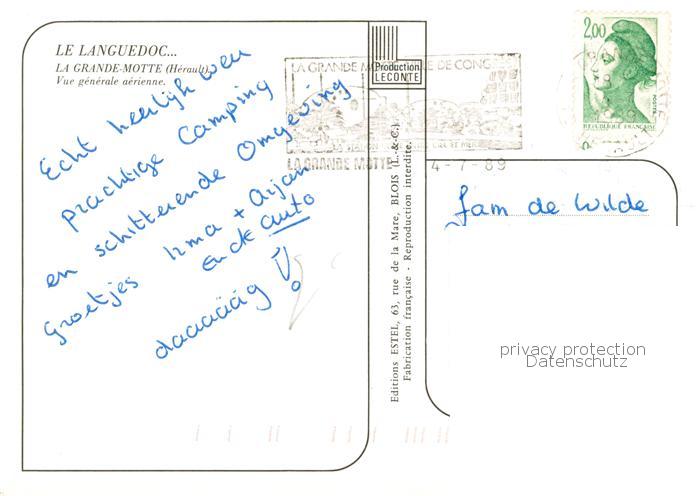 LE LANGUEDOC...
LA GRANDE-MOTTE (Hérault)
Vue générale aérienne.
Echt heerlijk weer
prachtige Camping
en schitterende Omgeving
groetjes Irma + Arjan
En de auto
daaaäåg !
Production
LECONTE
Editions ESTEL, 63, rue de la Mare, BLOIS (L.-&-C.)
Fabrication française - Reproduction interdite.
LA GRANDE MOTTE DE CONG
LA GRANDE MOTTE
4-7-89
2,00
POSTES
REPUBLIQUE FRANÇAISE
fam de Wilde
privacy protection
Datenschutz